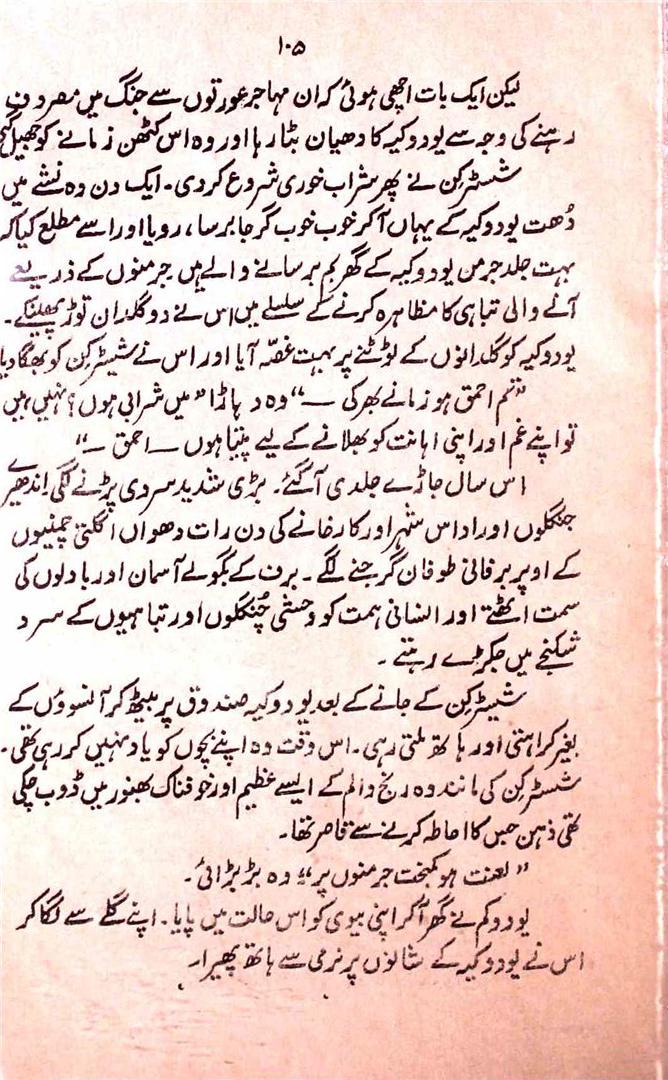 ۱۰۵
لیکن ایک بات اچھی ہوئی کہ ان مہاجر عورتوں سے جنگ میں مصروف
رہنے کی وجہ سے یودوکیہ کا دھیان بٹا رہا اور وہ اس کٹھن زمانے کو جھیل گئی
شسٹرکن نے پھر شراب خوری شروع کر دی۔ ایک دن وہ نشے میں
دُھت یودوکیہ کے یہاں آ کر خوب خوب گرجا برسا، رویا اور اسے مطلع کیا کہ
بہت جلد جرمن یودوکیہ کے گھر بم برسانے والے ہیں۔ جرمنوں کے ذریعے
آنے والی تباہی کا مظاہرہ کرنے کے سلسلے میں اس نے دو گلدان توڑ پھینکے۔
یودوکیہ کو گلدانوں کے ٹوٹنے پر بہت غصّہ آیا اور اس نے شیسٹرکن کو بھگا دیا
”تم احمق ہو زمانے بھر کی —“ وہ دہاڑا ”میں شرابی ہوں؟ نہیں، میں
تو اپنے غم اور اپنی اہانت کو بھلانے کے لیے پیتا ہوں — احمق —“
اس سال جاڑے جلدی آ گئے۔ بڑی شدید سردی پڑنے لگی اندھیرے
جنگلوں اور اداس شہر اور کارخانے کی دن رات دھواں اگلتی چمنیوں
کے اوپر برفانی طوفان گرجنے لگے۔ برف کے بگولے آسمان اور بادلوں کی
سمت اٹھتے اور انسانی ہمت کو وحشی چُنگلوں اور تباہیوں کے سرد
شکنجے میں جکڑے رہتے۔
شیسٹرکن کے جانے کے بعد یودوکیہ صندوق پر بیٹھ کر آنسووُں کے
بغیر کراہتی اور ہاتھ ملتی رہی۔ اس وقت وہ اپنے بچوں کو یاد نہیں کر رہی تھی۔
شسٹرکن کی مانند وہ رنج و الم کے ایسے عظیم اور خوفناک بھنور میں ڈوب چکی
تھی ذہن جس کا احاطہ کرنے سے قاصر تھا۔
”لعنت ہو کمبخت جرمنوں پر“ وہ بڑبڑائی۔
یودوکم نے گھر آ کر اپنی بیوی کو اس حالت میں پایا۔ اپنے گلے سے لگا کر
اس نے یودوکیہ کے شانوں پر نرمی سے ہاتھ پھیرا۔